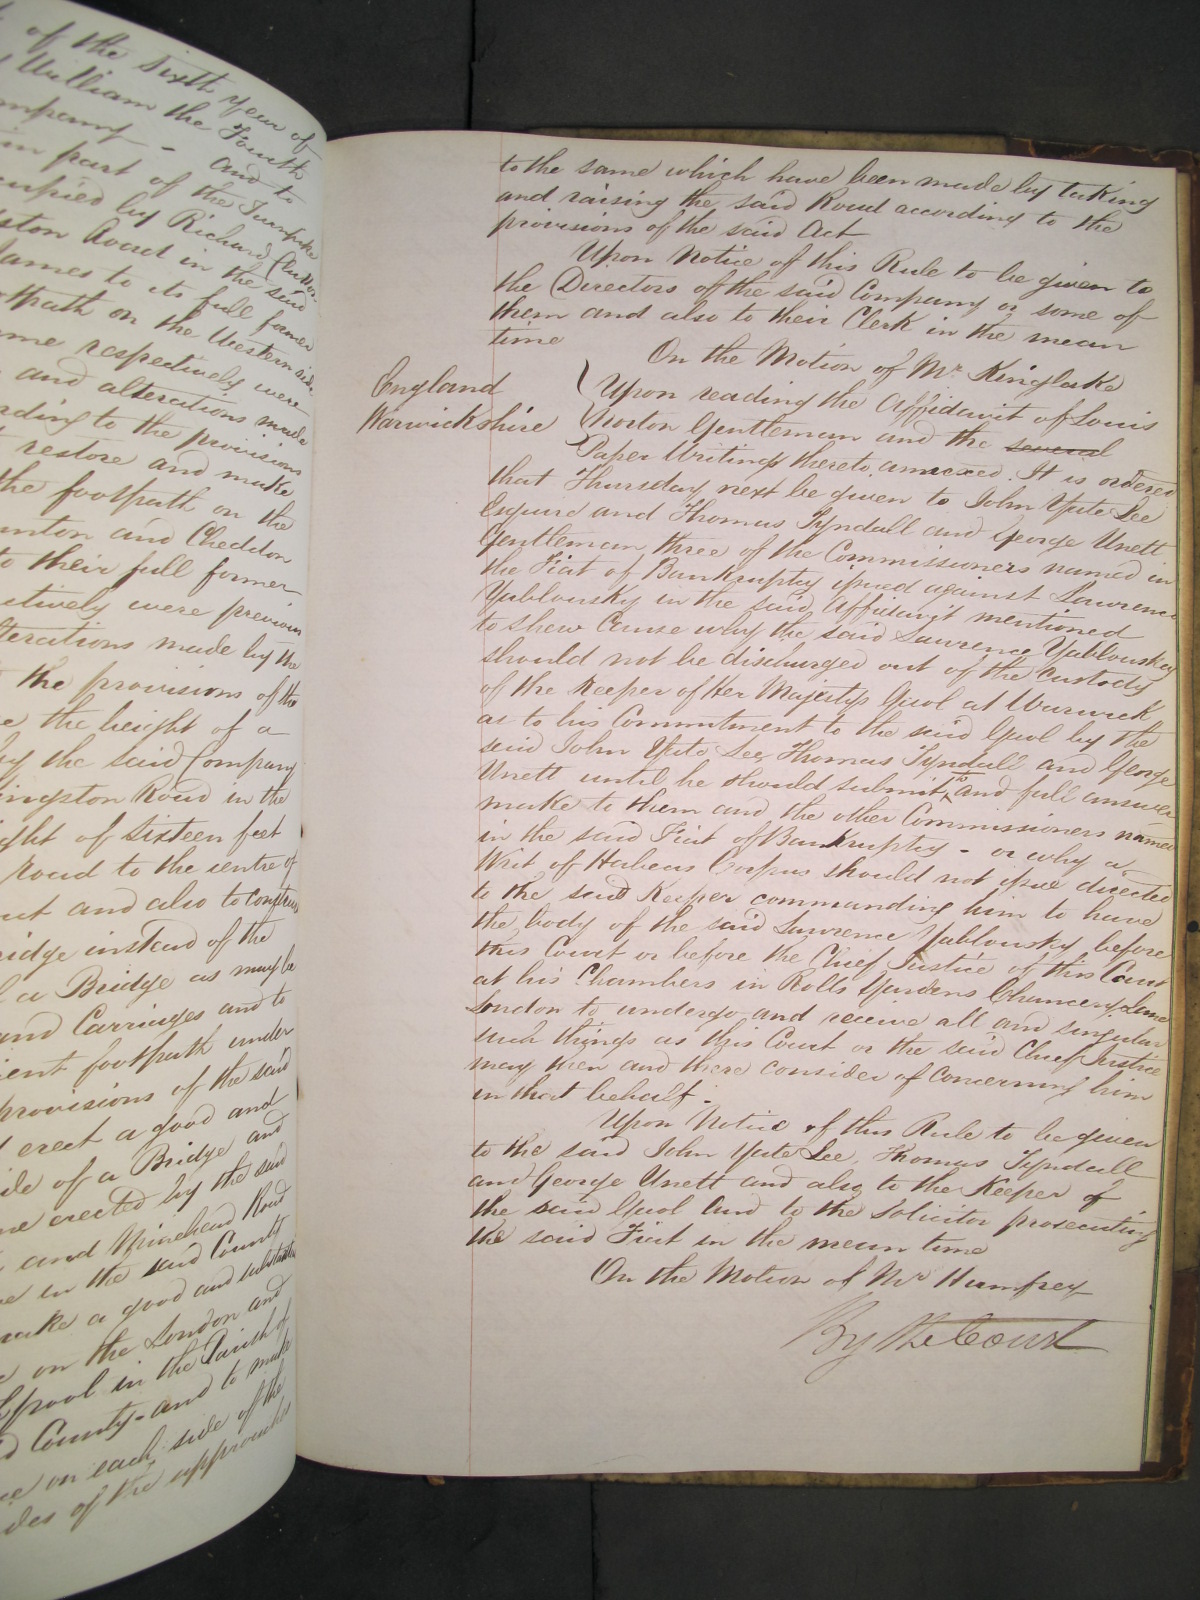 of the Sixth year of
William the Fourth
and to
in part of the Turnpike
occupied by Richard
Road in the said
James to its full former
footpath on the Western side
same respectively were
and alterations made
according to the provisions
restore and make
the footpath on the
Taunton and Cheddon
to their full former
respectively were previous
alterations made by the
the provisions of the
the height of a
by the said Company
Kingston Road in the
height of Sixteen feet
road to the centre of
and also to construct
Bridge instead of the
a Bridge as may be
and Carriages and to
footpath under
provisions of the said
erect a good and
side of a Bridge and
erected by the said
and Road
in the said County
make a good and substantial
on the London and
in the Parish of
County - and to make
on each side of the
sides of the approaches
to the same which have been made by taking
and raising the said Road according to the
provisions of the said Act
Upon Notice of this Rule to be given to
the Directors of the said Company or some of
them and also to their Clerk in the mean
time
On the Motion of Mr. Kinglake
England
Warwickshire
Upon reading the Affidavit of Louis
Norton Gentleman and the several
Paper Writings thereto annexed. It is ordered
that Thursday next be given to John Yate Lee
Esquire and Thomas Tyndall and George Unett
Gentleman, three of the Commissioners named in
the Fiat of Bankruptcy issued against Lawrence
Yablonsky in the said Affidavit mentioned
to shew Cause why the said Lawrence Yablonsky
should not be discharged out of the Custody
of the Keeper of Her Majestys Gaol at Warwick
as to his Commitment to the said Gaol by the
said John Yate Lee, Thomas Tyndall and George
Unett until he should submit to and full answer
make to them and the other Commissioners named
in the said Fiat of Bankruptcy - or why a
Writ of Habeas Corpus should not issue directed
to the said Keeper commanding him to have
the body of the said Lawrence Yablonsky before
this Court or before the Chief Justice of this Court
at his Chambers in Rolls Gardens Chancery Lane
London to undergo and receive all and singular
such things as this Court or the said Chief Justice
may then and there consider of concerning him
in that behalf.
Upon Notice of this Rule to be given
to the said John Yate Lee, Thomas Tyndall
and George Unett and also to the Keeper of
the said Gaol and to the Solicitor prosecuting
the said Fiat in the mean time
On the Motion of Mr. Humfrey
By the Court